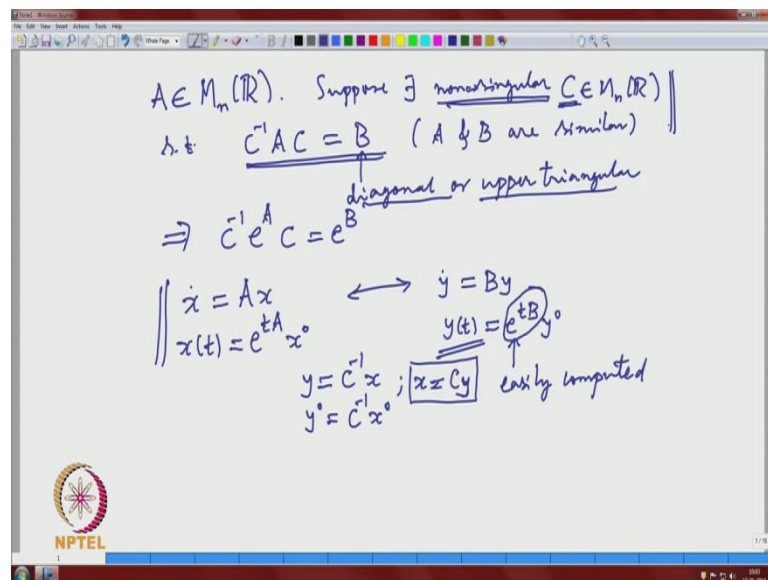 Note1 - Windows Journal
File Edit View Insert Actions Tools Help
Whole Page
A ∈ Mₙ(ℝ). Suppose ∃ nonsingular C ∈ Mₙ(ℝ)
s.t. C⁻¹AC = B (A & B are similar)
diagonal or upper triangular
⇒ C⁻¹e^A C = e^B
ẋ = Ax ⟷ ẏ = By
x(t) = e^{tA} x⁰ y(t) = e^{tB} y⁰
y = C⁻¹x ; x = Cy easily computed
y⁰ = C⁻¹x⁰
NPTEL